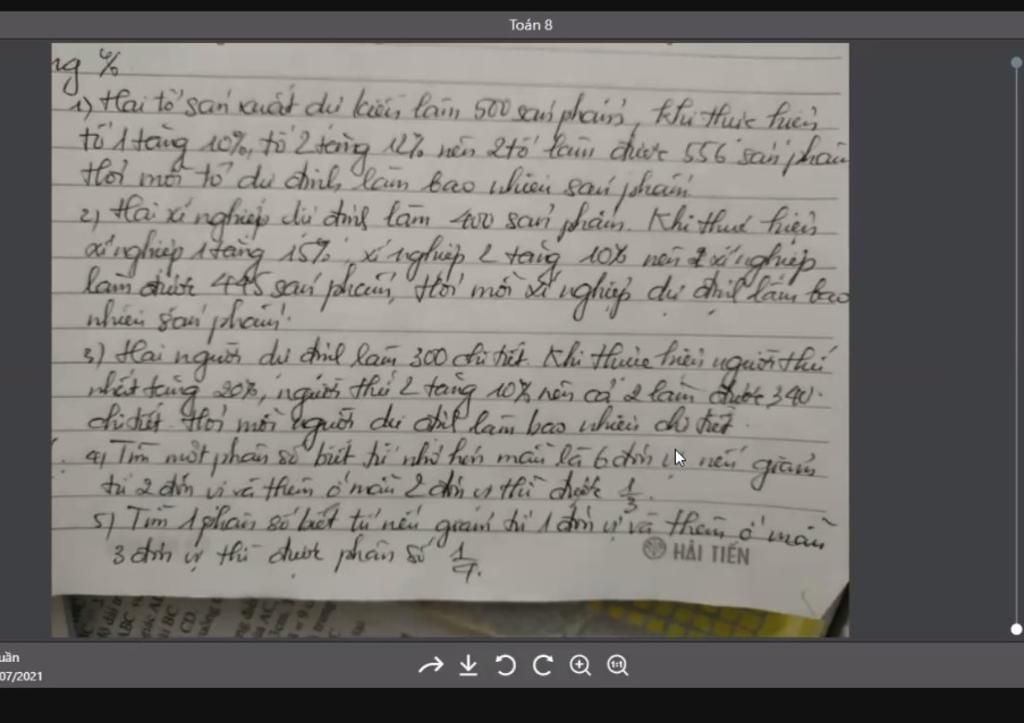 Toán 8
ng %
1) Hai tổ sản xuất dự kiến làm 500 sản phẩm, khi thực hiện
tổ 1 tăng 10%, tổ 2 tăng 12% nên 2 tổ làm được 556 sản phẩm
Hỏi mỗi tổ dự định làm bao nhiêu sản phẩm
2) Hai xí nghiệp dự định làm 400 sản phẩm. Khi thực hiện
xí nghiệp 1 tăng 15%, xí nghiệp 2 tăng 10% nên 2 xí nghiệp
làm được 445 sản phẩm, Hỏi mỗi xí nghiệp dự định làm bao
nhiêu sản phẩm.
3) Hai người dự định làm 300 chi tiết. Khi thực hiện người thứ
nhất tăng 20%, người thứ 2 tăng 10% nên cả 2 làm được 340.
chi tiết. Hỏi mỗi người dự định làm bao nhiêu chi tiết.
4) Tìm một phân số biết tử nhỏ hơn mẫu là 6 đơn vị nếu giảm
tử 2 đơn vị và thêm ở mẫu 2 đơn vị thì được 1/3.
5) Tìm 1 phân số biết tử nếu giảm tử 1 đơn vị và thêm ở mẫu
3 đơn vị thì được phân số 1/4.
HẢI TIẾN
uần
07/2021
1:1